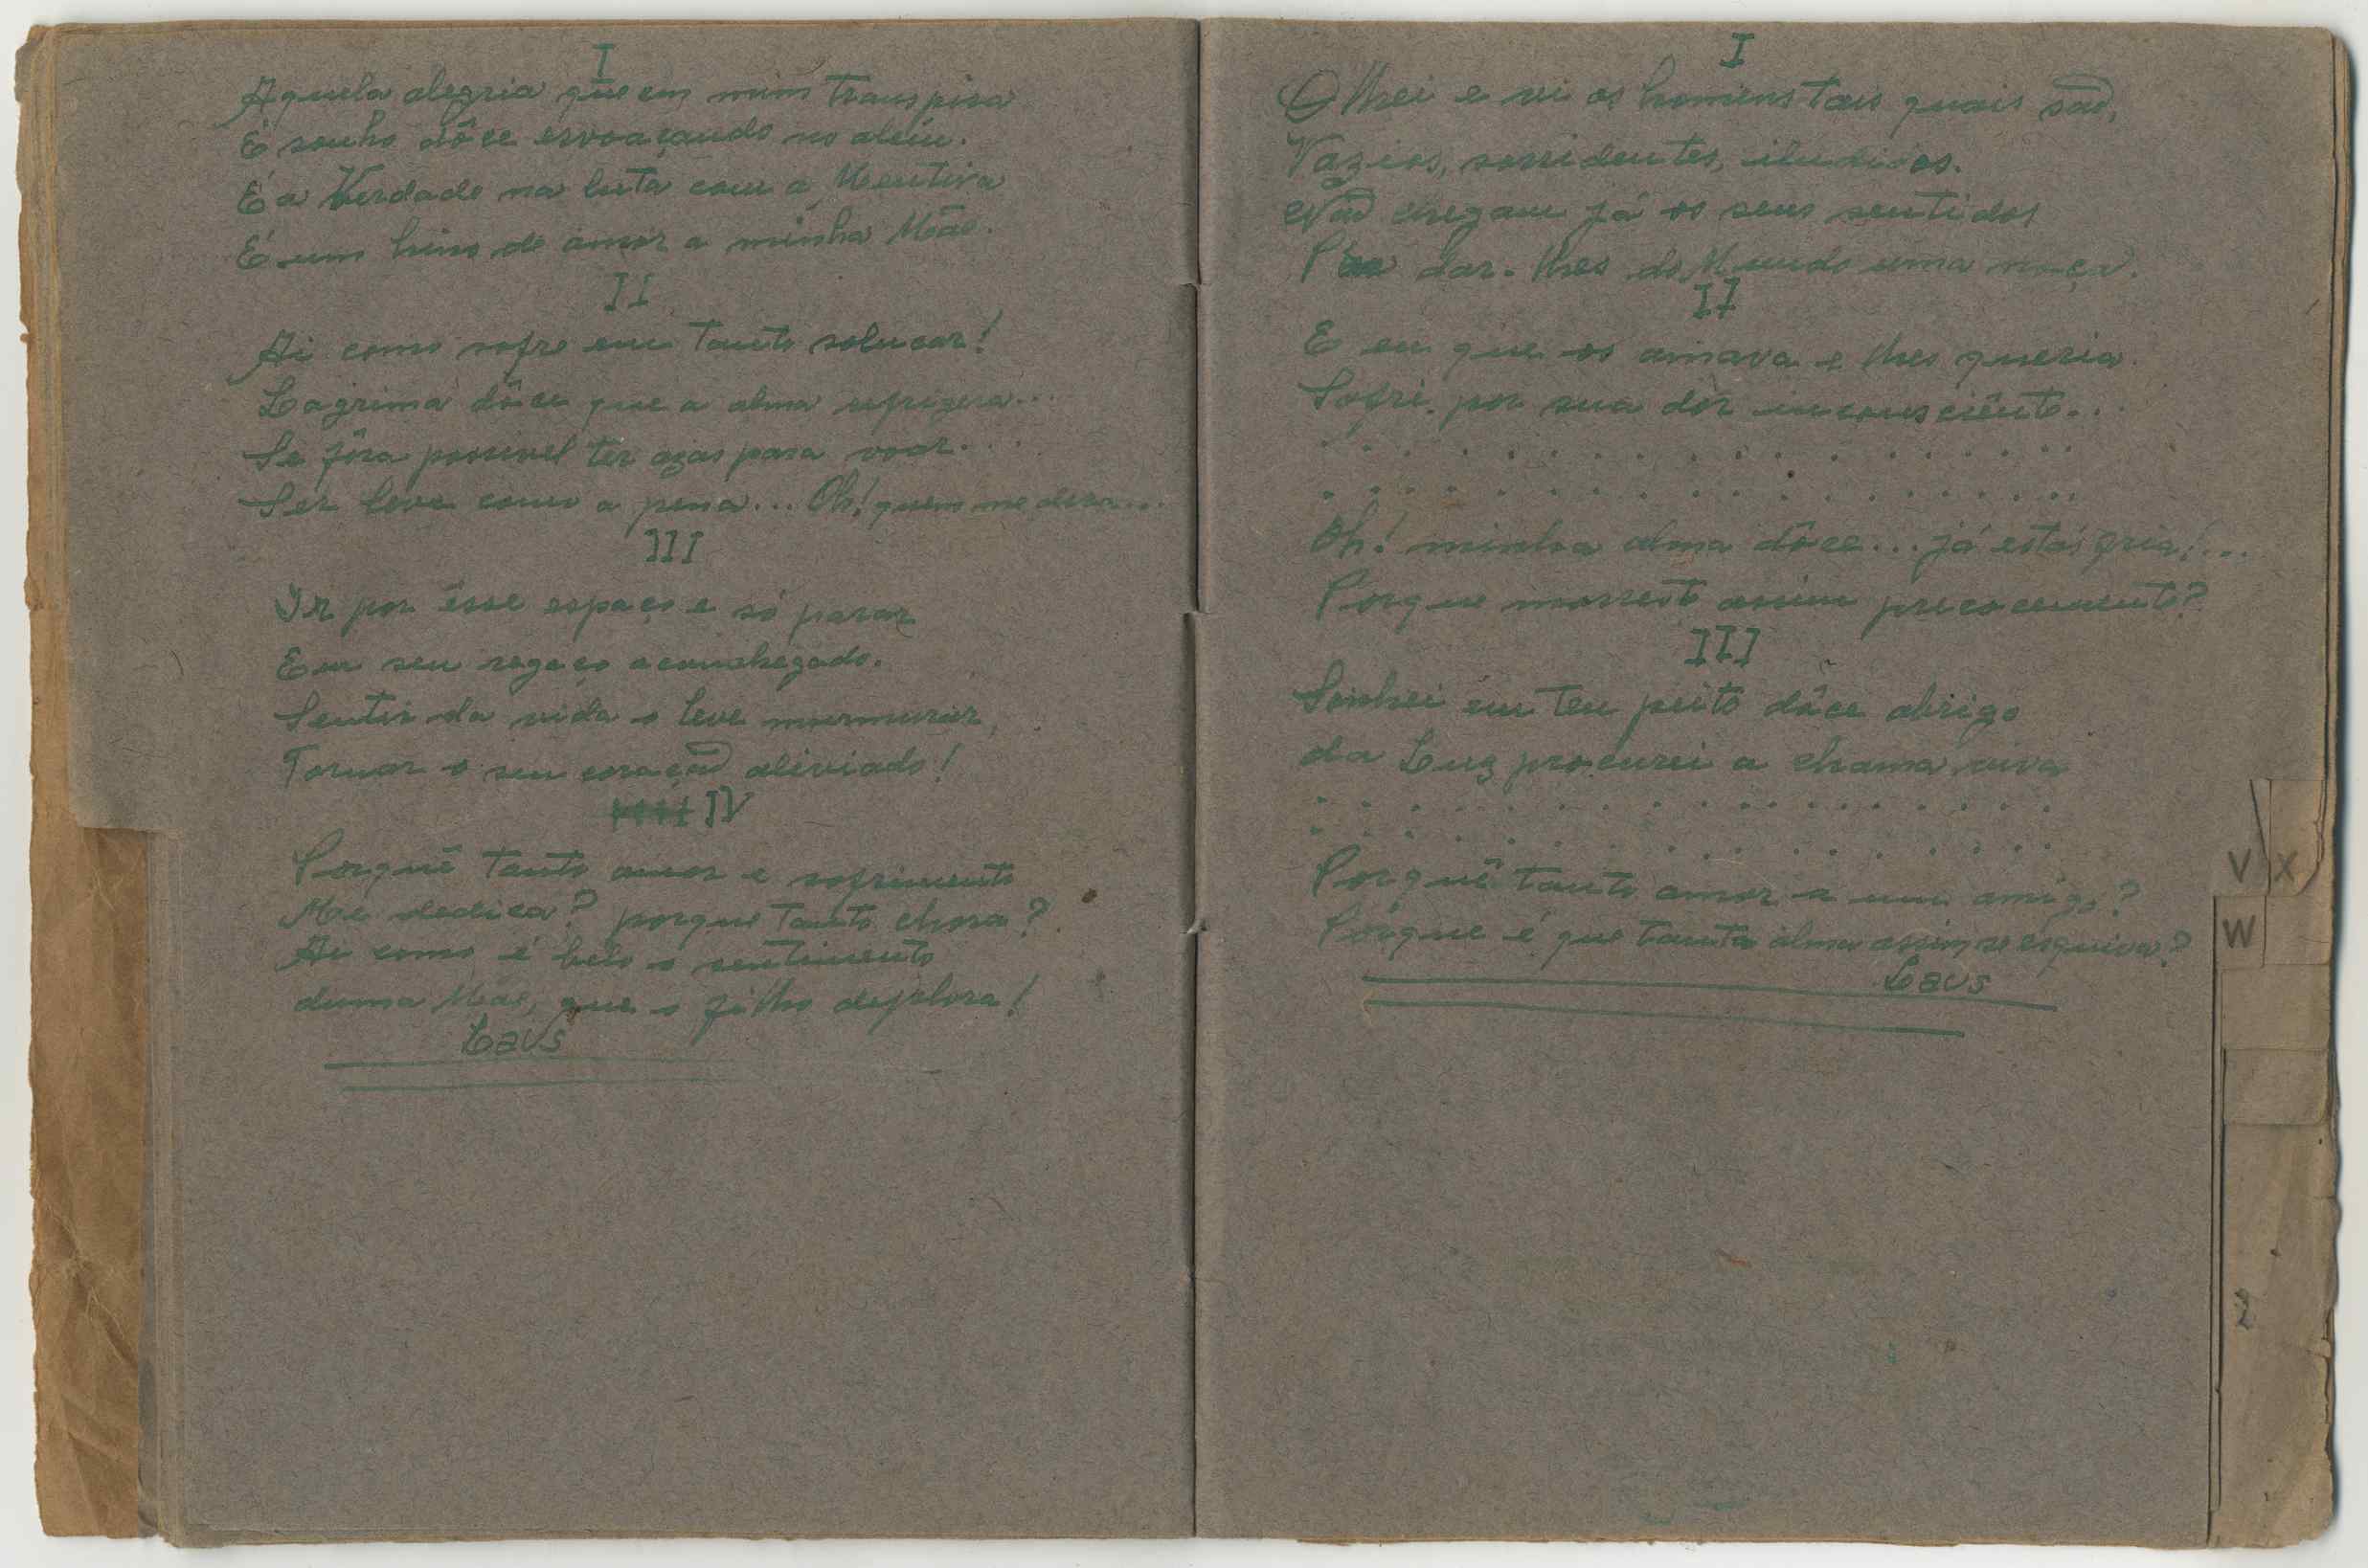 I
Aquela alegria que em mim transpira
É sonho dôce esvoaçando no além.
É a Verdade na luta com a Mentira
É um hino de amor a minha Mãe.
II
Ai como sofre em tanto soluçar!
Lagrima dôce que a alma refrigera...
Se fôra possivel ter azas para voar...
Ser leve como a pena... Oh! quem me dera...
III
Ir por êsse espaço e só parar
Em seu regaço aconchegado.
Sentir da vida o leve murmurar,
Tornar o seu coração aliviado!
IV
Porquê tanto amor e sofrimento
Me dedica? porque tanto chora?
Ai como é belo o sentimento
duma Mãe, que o filho deplora!
Laus
I
Olhei e vi os homens tais quais são,
Vazios, sorridentes, iludidos.
Não chegam já os seus sentidos
P'ra dar-lhes do Mundo uma noção.
II
E eu que os amava e lhes queria
Sofri por sua dôr inconsciênte...
. . . . . . . . . . . . . . . . . .
. . . . . . . . . . . . . . . . . .
Oh! minha alma dôce... já estás fria!...
Porque morreste assim precocemente?
III
Sonhei em teu peito dôce abrigo
da Luz procurei a chama viva
. . . . . . . . . . . . . . . . . .
. . . . . . . . . . . . . . . . . .
Porquê tanto amor a um amigo?
Porque é que tanta alma assim se esquiva?
Laus
V X
W
Z